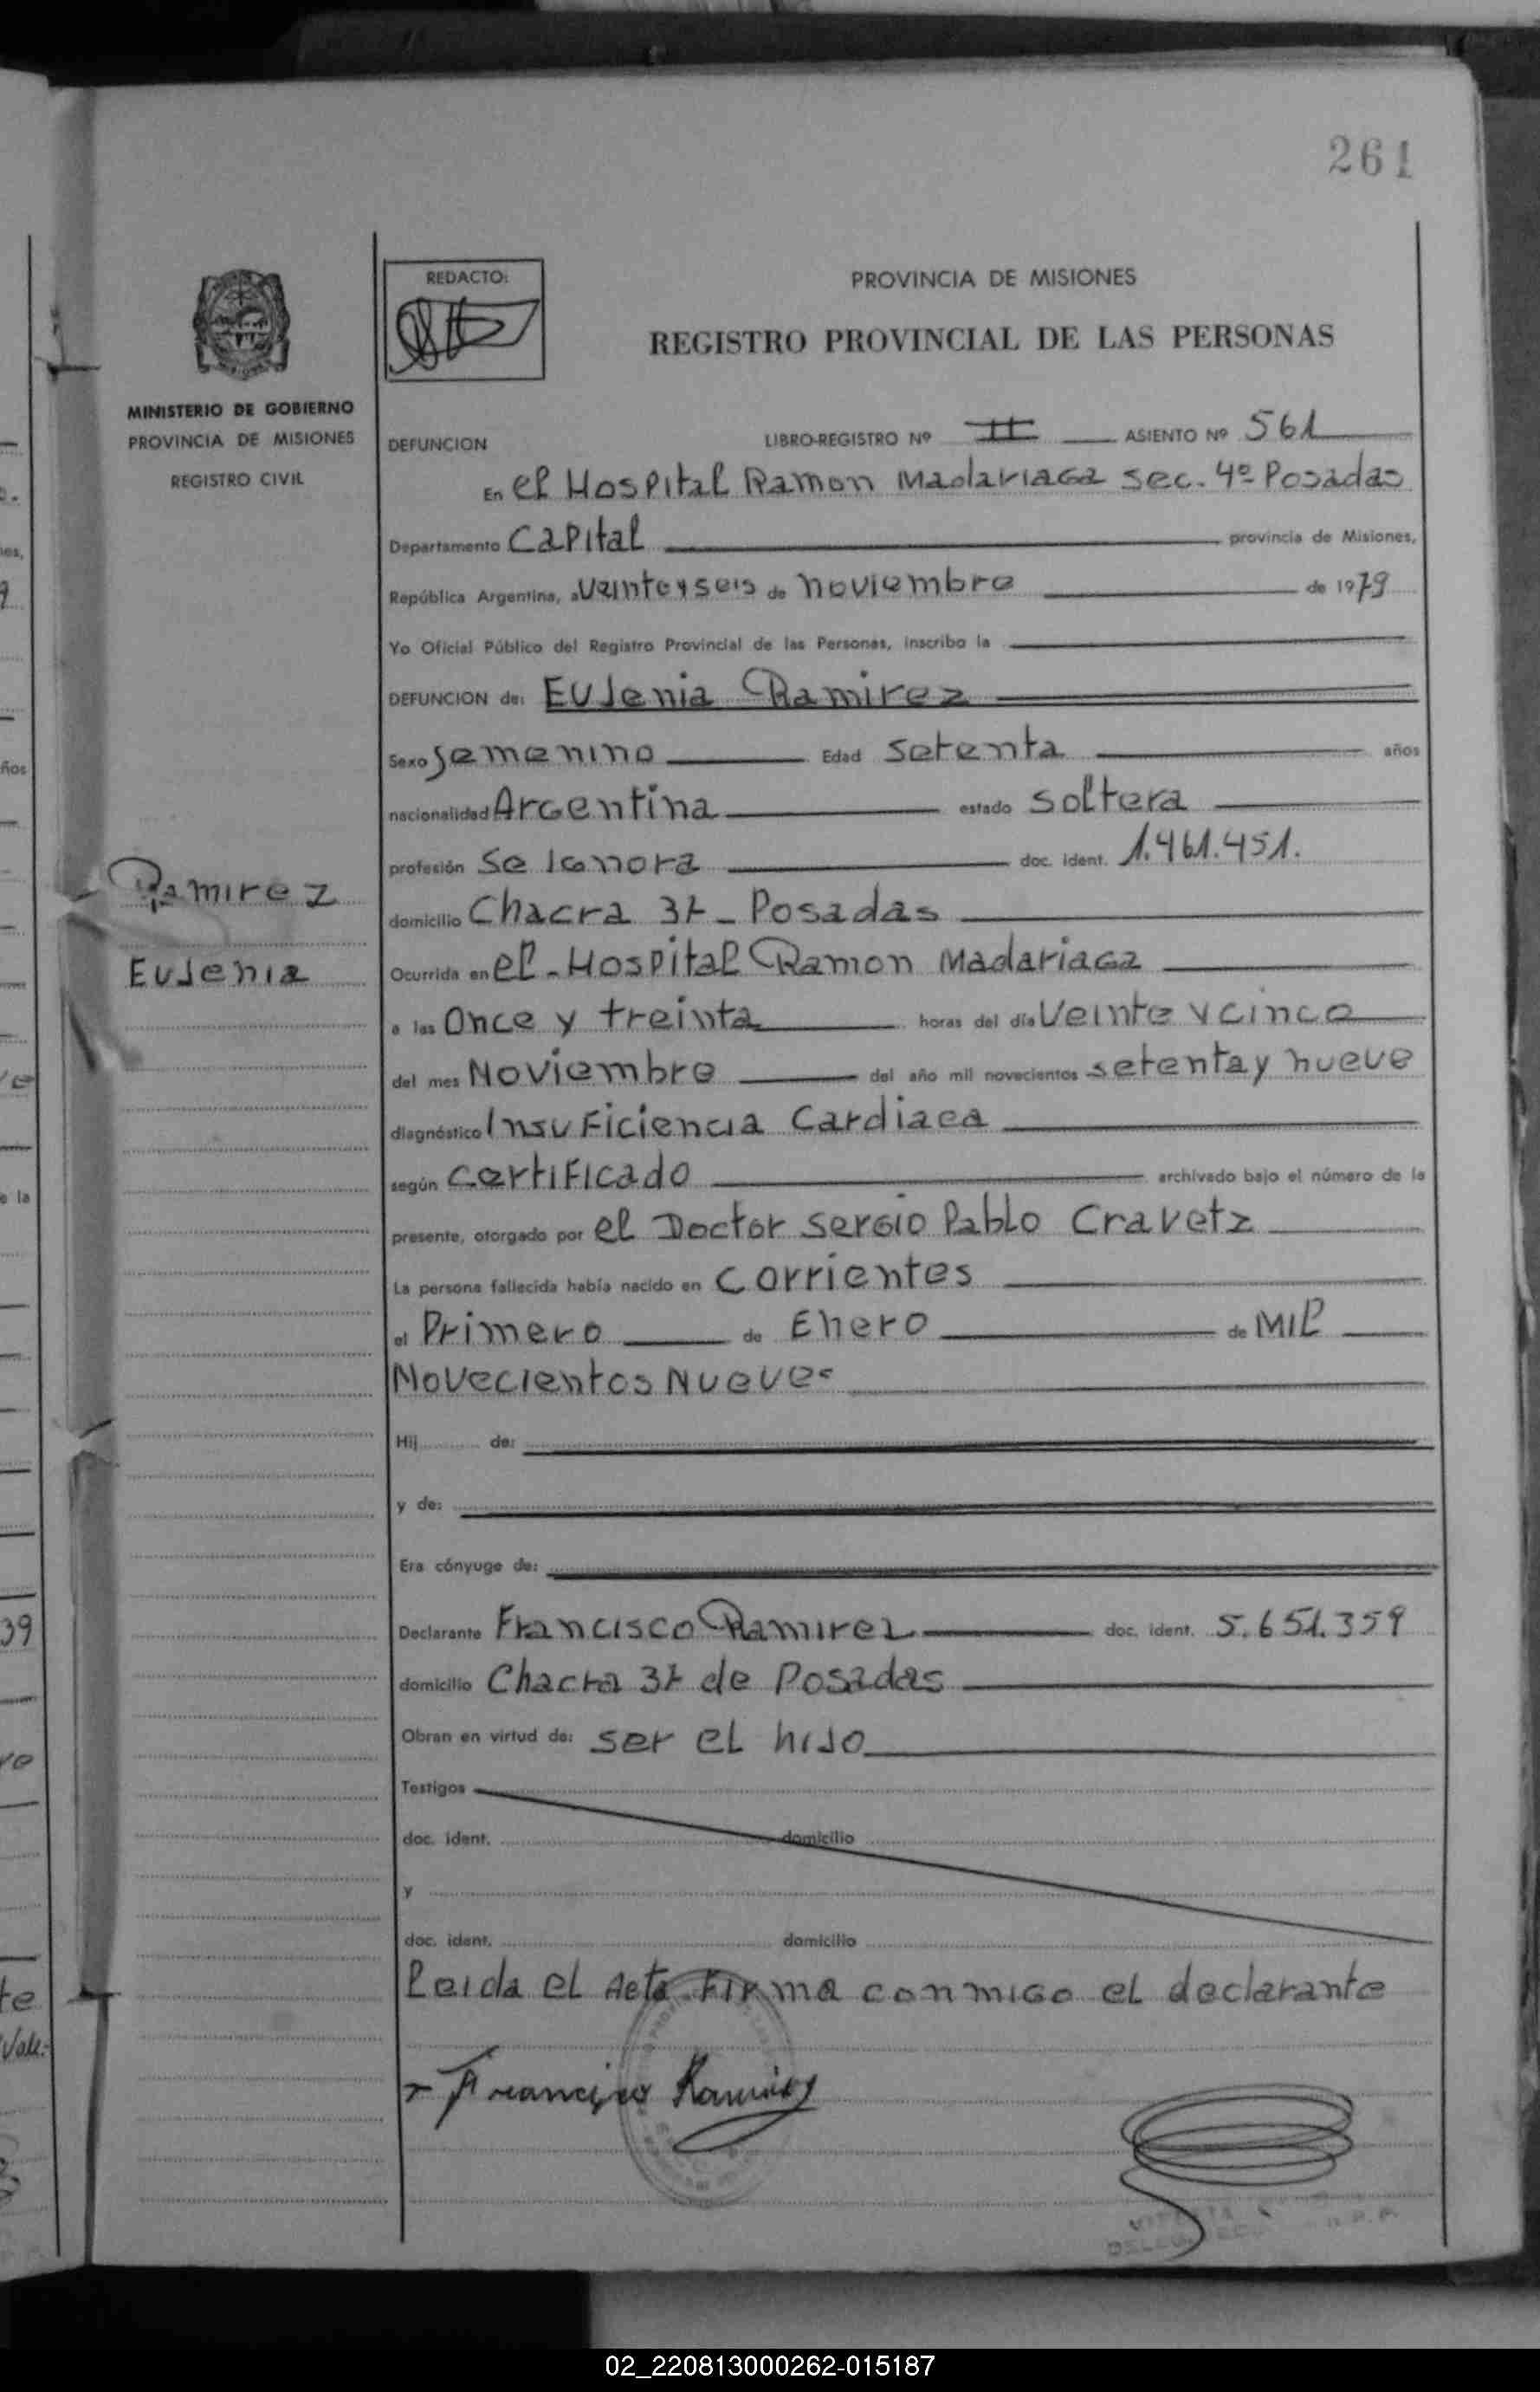 261
REDACTO:
PROVINCIA DE MISIONES
REGISTRO PROVINCIAL DE LAS PERSONAS
MINISTERIO DE GOBIERNO
PROVINCIA DE MISIONES
REGISTRO CIVIL
DEFUNCION LIBRO-REGISTRO Nº II ASIENTO Nº 561
En el Hospital Ramon Madariaga sec. 4º Posadas
Departamento Capital provincia de Misiones,
República Argentina, a veinteyseis de noviembre de 1979
Yo Oficial Público del Registro Provincial de las Personas, inscribo la
DEFUNCION de: Eujenia Ramirez
Sexo femenino Edad setenta años
nacionalidad Argentina estado soltera
profesión doc. ident. 1.461.451.
Ramirez
Eujenia
domicilio Chacra 37 - Posadas
Ocurrida en el - Hospital Ramon Madariaga
a las Once y treinta horas del día Veinte y cinco
del mes Noviembre del año mil novecientos setenta y nueve
diagnóstico Insuficiencia Cardiaca
según certificado archivado bajo el número de la
presente, otorgado por el Doctor Sergio Pablo Cravetz
La persona fallecida había nacido en Corrientes
el Primero de Enero de Mil
Novecientos Nueve
Hij de:
y de:
Era cónyuge de:
Declarante Francisco Ramirez doc. ident. 5.651.359
domicilio Chacra 37 de Posadas
Obran en virtud de: ser el hijo
Testigos
doc. ident. domicilio
y
doc. ident. domicilio
Leida el Acta firma conmigo el declarante
Francisco Ramirez
39
te
Vale.-
02_220813000262-015187